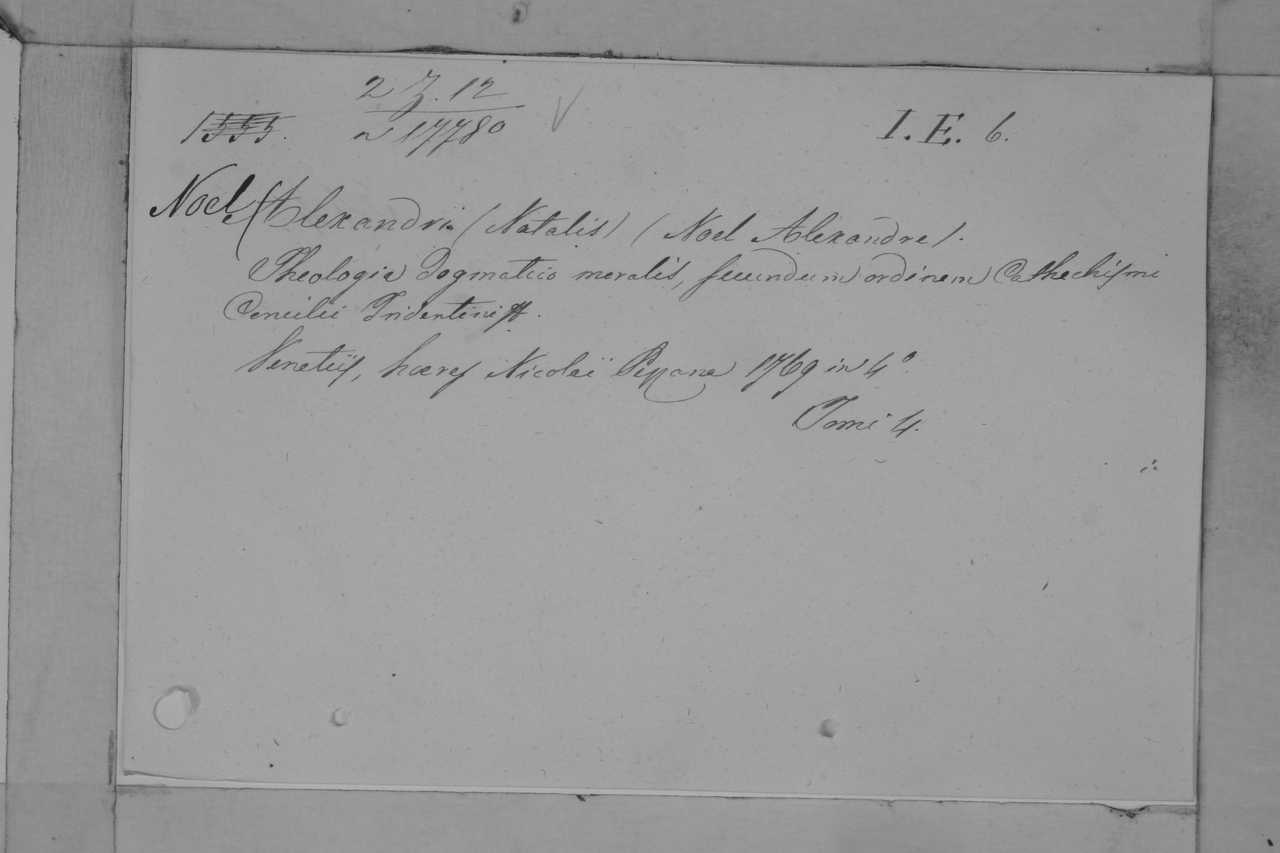 2 Z. 12
1555. a 17780 I. E. 6.
Noel, (Alexandri (Natalis) (Noel Alexandre).
Theologia Dogmatico moralis, secundum ordinem Cathechismi
Concilii Tridentini
Venetiis, haeres Nicolaï Pezzana 1769 in 4°.
Tomi 4.